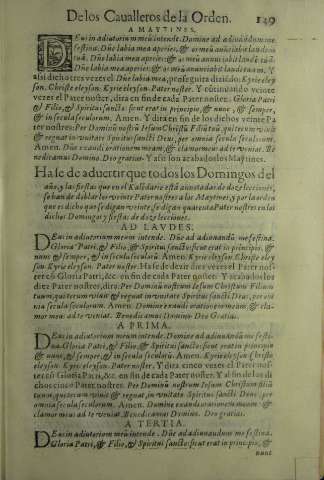 De los Caualleros de la Orden. 149
A MAYTINES.
DEus in adiutoriũ meũ intende. Domine ad adiuuãdum me
festina. Dñe labia mea aperies, & os meũ anũciabit laudem
tuã. Dñe labia mea aperies: & os meũ annunciabit laudẽ tuã.
Dñe labia mea aperies: & os meũ anũciabit laudem tuam. Y
assi dicho tres vezes el Dñe labia mea, proseguira diziẽdo: Kyrie eley
son. Christe eleyson. Kyrie eleyson. Pater noster. Y cõtinuando veinte
vezes el Pater noster, dira en fin de cada Pater noster. Gloria Patri
& Filio, & Spiritui sancto: sicut erat in principio, & nunc, & semper,
& in secula seculorum. Amen. Y dira en fin de los dichos veinte Pa
ter nostres: Per Dominũ nostrũ Iesum Christũ Filiũ tuũ, qui tecum viuit
& regnat in vnitate Spiritus sancti Deus, per omnia secula seculorum.
Amen. Dñe exaudi orationem meam; & clamor meus ad te veniat. Be
nedicamus Domino. Deo gratias. Y assi son acabados los Maytines.
Hase de aduertir que todos los Domingos del
año, y las fiestas que en el Kalẽdario estã annotadas de doze lecciones,
se han de doblar los veynte Pater nostres a los Maytines, y por la orden
que es dicho que se digan veinte, se digan quarenta Pater nostres en los
dichos Domingos y fiestas de doze lecciones.
AD LAVDES.
DEus in adiutorium meum intende. Dñe ad adiuuandũ me festina.
Gloria Patri, & Filio, & Spiritui sancto: sicut erat in principio, &
nunc & semper, & in secula seculorũ. Amen. Kyrie eleyson Christe eley
son Kyrie eleyson. Pater noster. Hase de dezir diez vezes el Pater nos-
ter cõ Gloria Patri, &c. en fin de cada Pater noster. Y acabados los
diez Pater nostres, dira: Per Dominũ nostrum Iesum Christum Filium
tuum, qui tecum viuit & regnat in vnitate Spiritus sancti Deus, per om
nia secula seculorum. Amen. Domine exaudi orationem meam, & cla
mor meus ad te veniat. Benedicamus Domino Deo Gratias.
A PRIMA.
DEus in adiutorium meum intende. Domine ad adiuuandũ me festi
na. Gloria Patri, & Filio, & Spiritui sancto: sicut erat in principio
& nunc, & semper, & in secula seculorũ. Amen. Kyrie eleyson Christe
eleyson, Kyrie eleyson. Pater noster. Y dira cinco vezes el Pater nos-
ter cõ Gloria Patri, &c. en fin de cada Pater noster. Y al fin de los di
chos cinco Pater nostres. Per Dominũ nostrum Iesum Christum filiũ
tuum, qui tecum viuit & regnat, in vnitate Spiritus sancti Deus, per
omnia secula seculorum. Amen. Domine exaudi orationem meam: &
clamor meus ad te veniat. Benedicamus Domino. Deo gratias.
A TERTIA.
DEus in adiutorium meum intende. Dñe ad adiuuandum me festina.
Gloria Patri, & Filio, & Spiritui sancto: sicut erat in principio, &
nunc